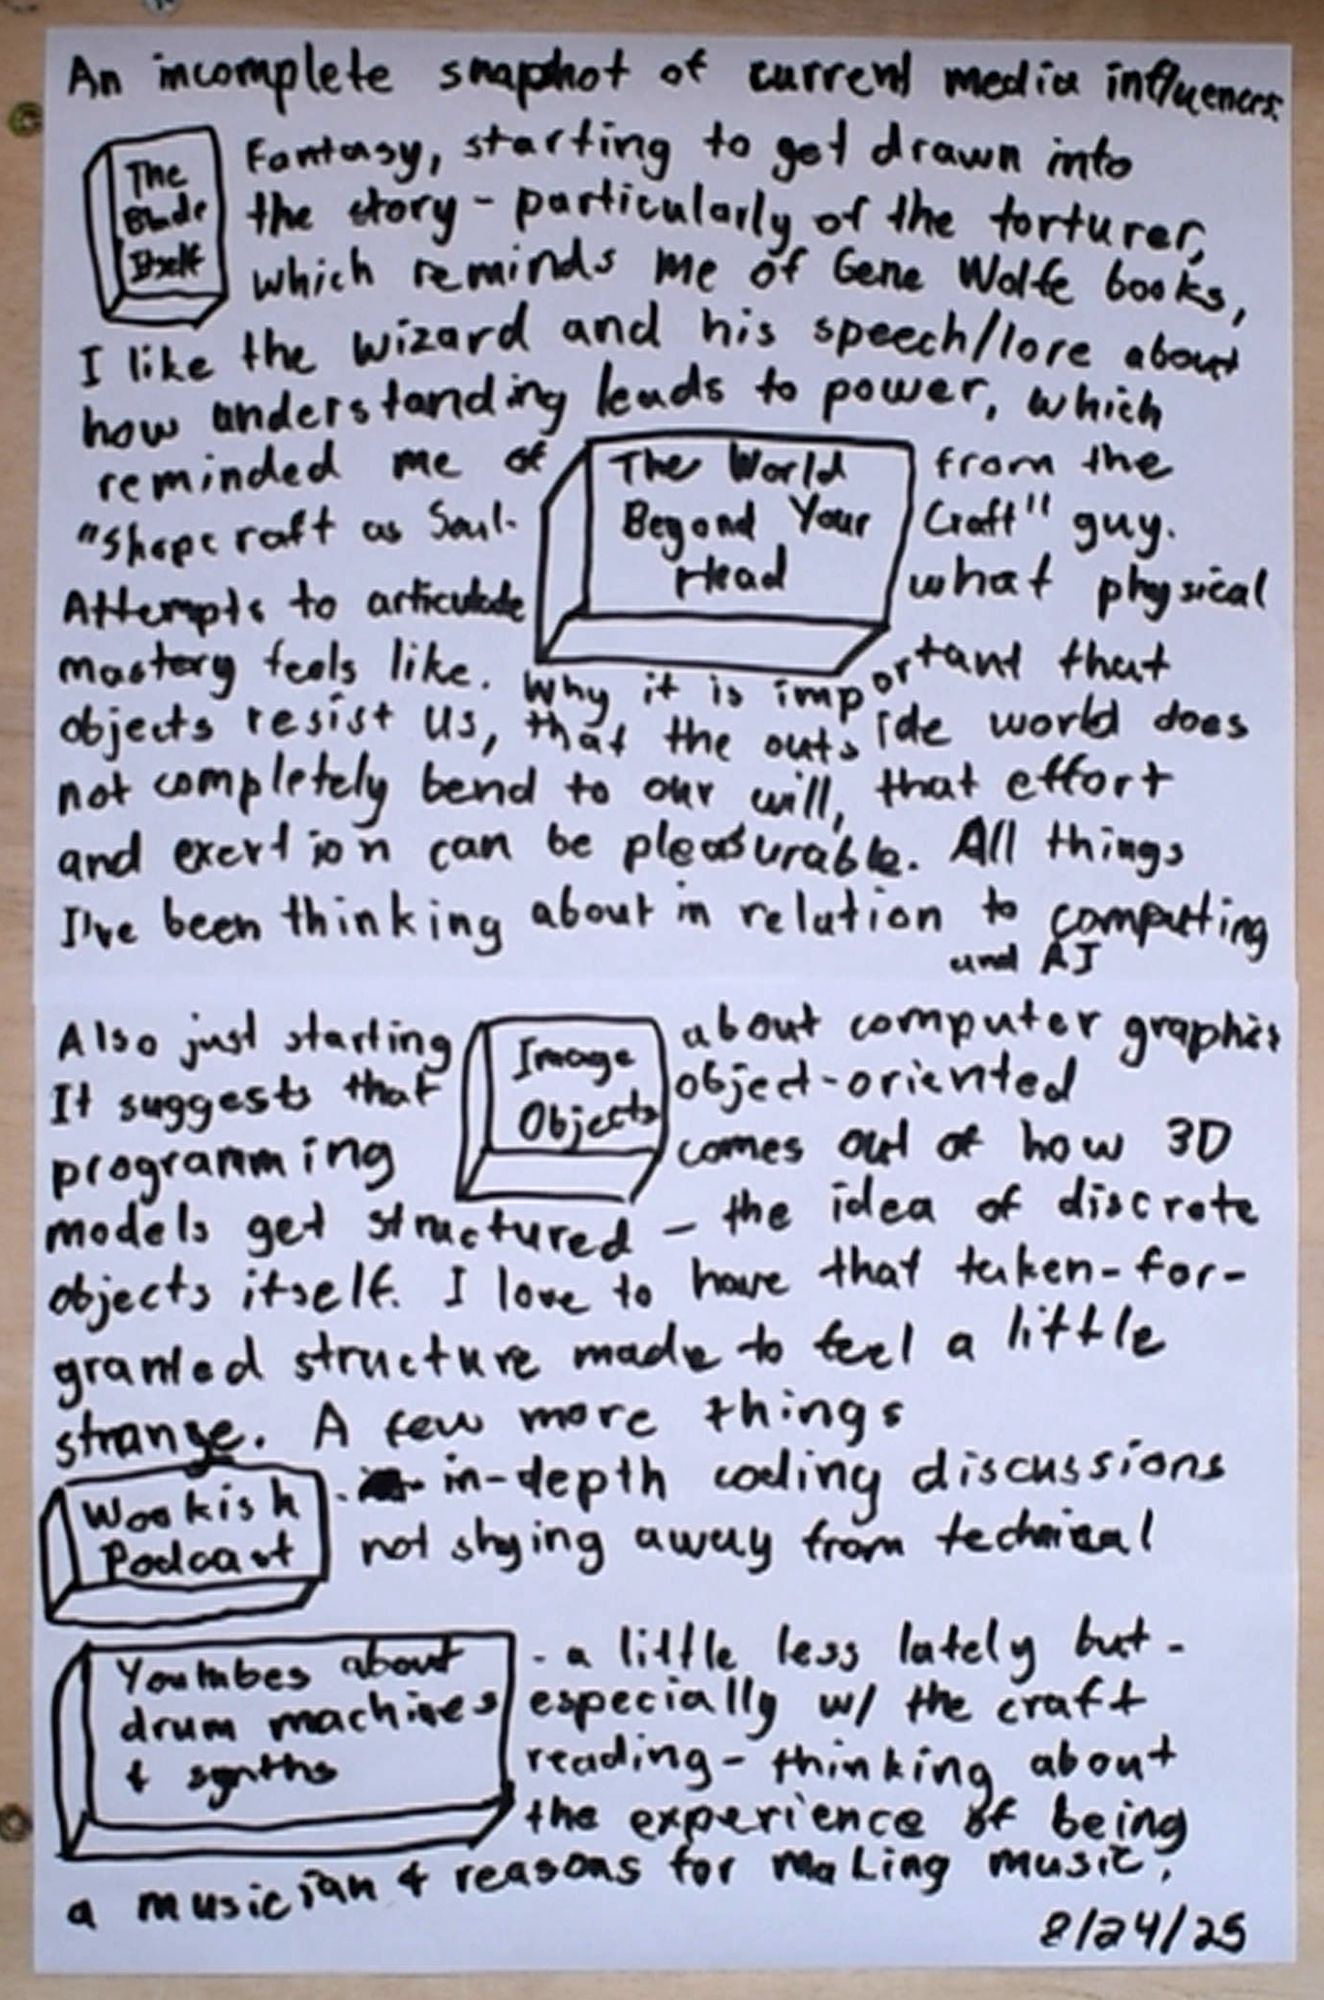 An incomplete snapshot of current media influences:
The Blade Itself
Fantasy, starting to get drawn into
the story - particularly of the torturer,
which reminds me of Gene Wolfe books,
I like the wizard and his speech/lore about
how understanding leads to power, which
reminded me of The World Beyond Your Head from the
"Shopcraft as Soul-Craft" guy.
Attempts to articulate what physical
mastery feels like. Why it is important that
objects resist us, that the outside world does
not completely bend to our will, that effort
and exertion can be pleasurable. All things
I've been thinking about in relation to computing
and AI
Also just starting Image Objects about computer graphics
It suggests that object-oriented
programming comes out of how 3D
models get structured - the idea of discrete
objects itself. I love to have that taken-for-
granted structure made to feel a little
strange. A few more things
Wookish Podcast
- in-depth coding discussions
not shying away from technical
Youtubes about
drum machines
+ synths
- a little less lately but -
especially w/ the craft
reading - thinking about
the experience of being
a musician + reasons for making music.
8/24/25